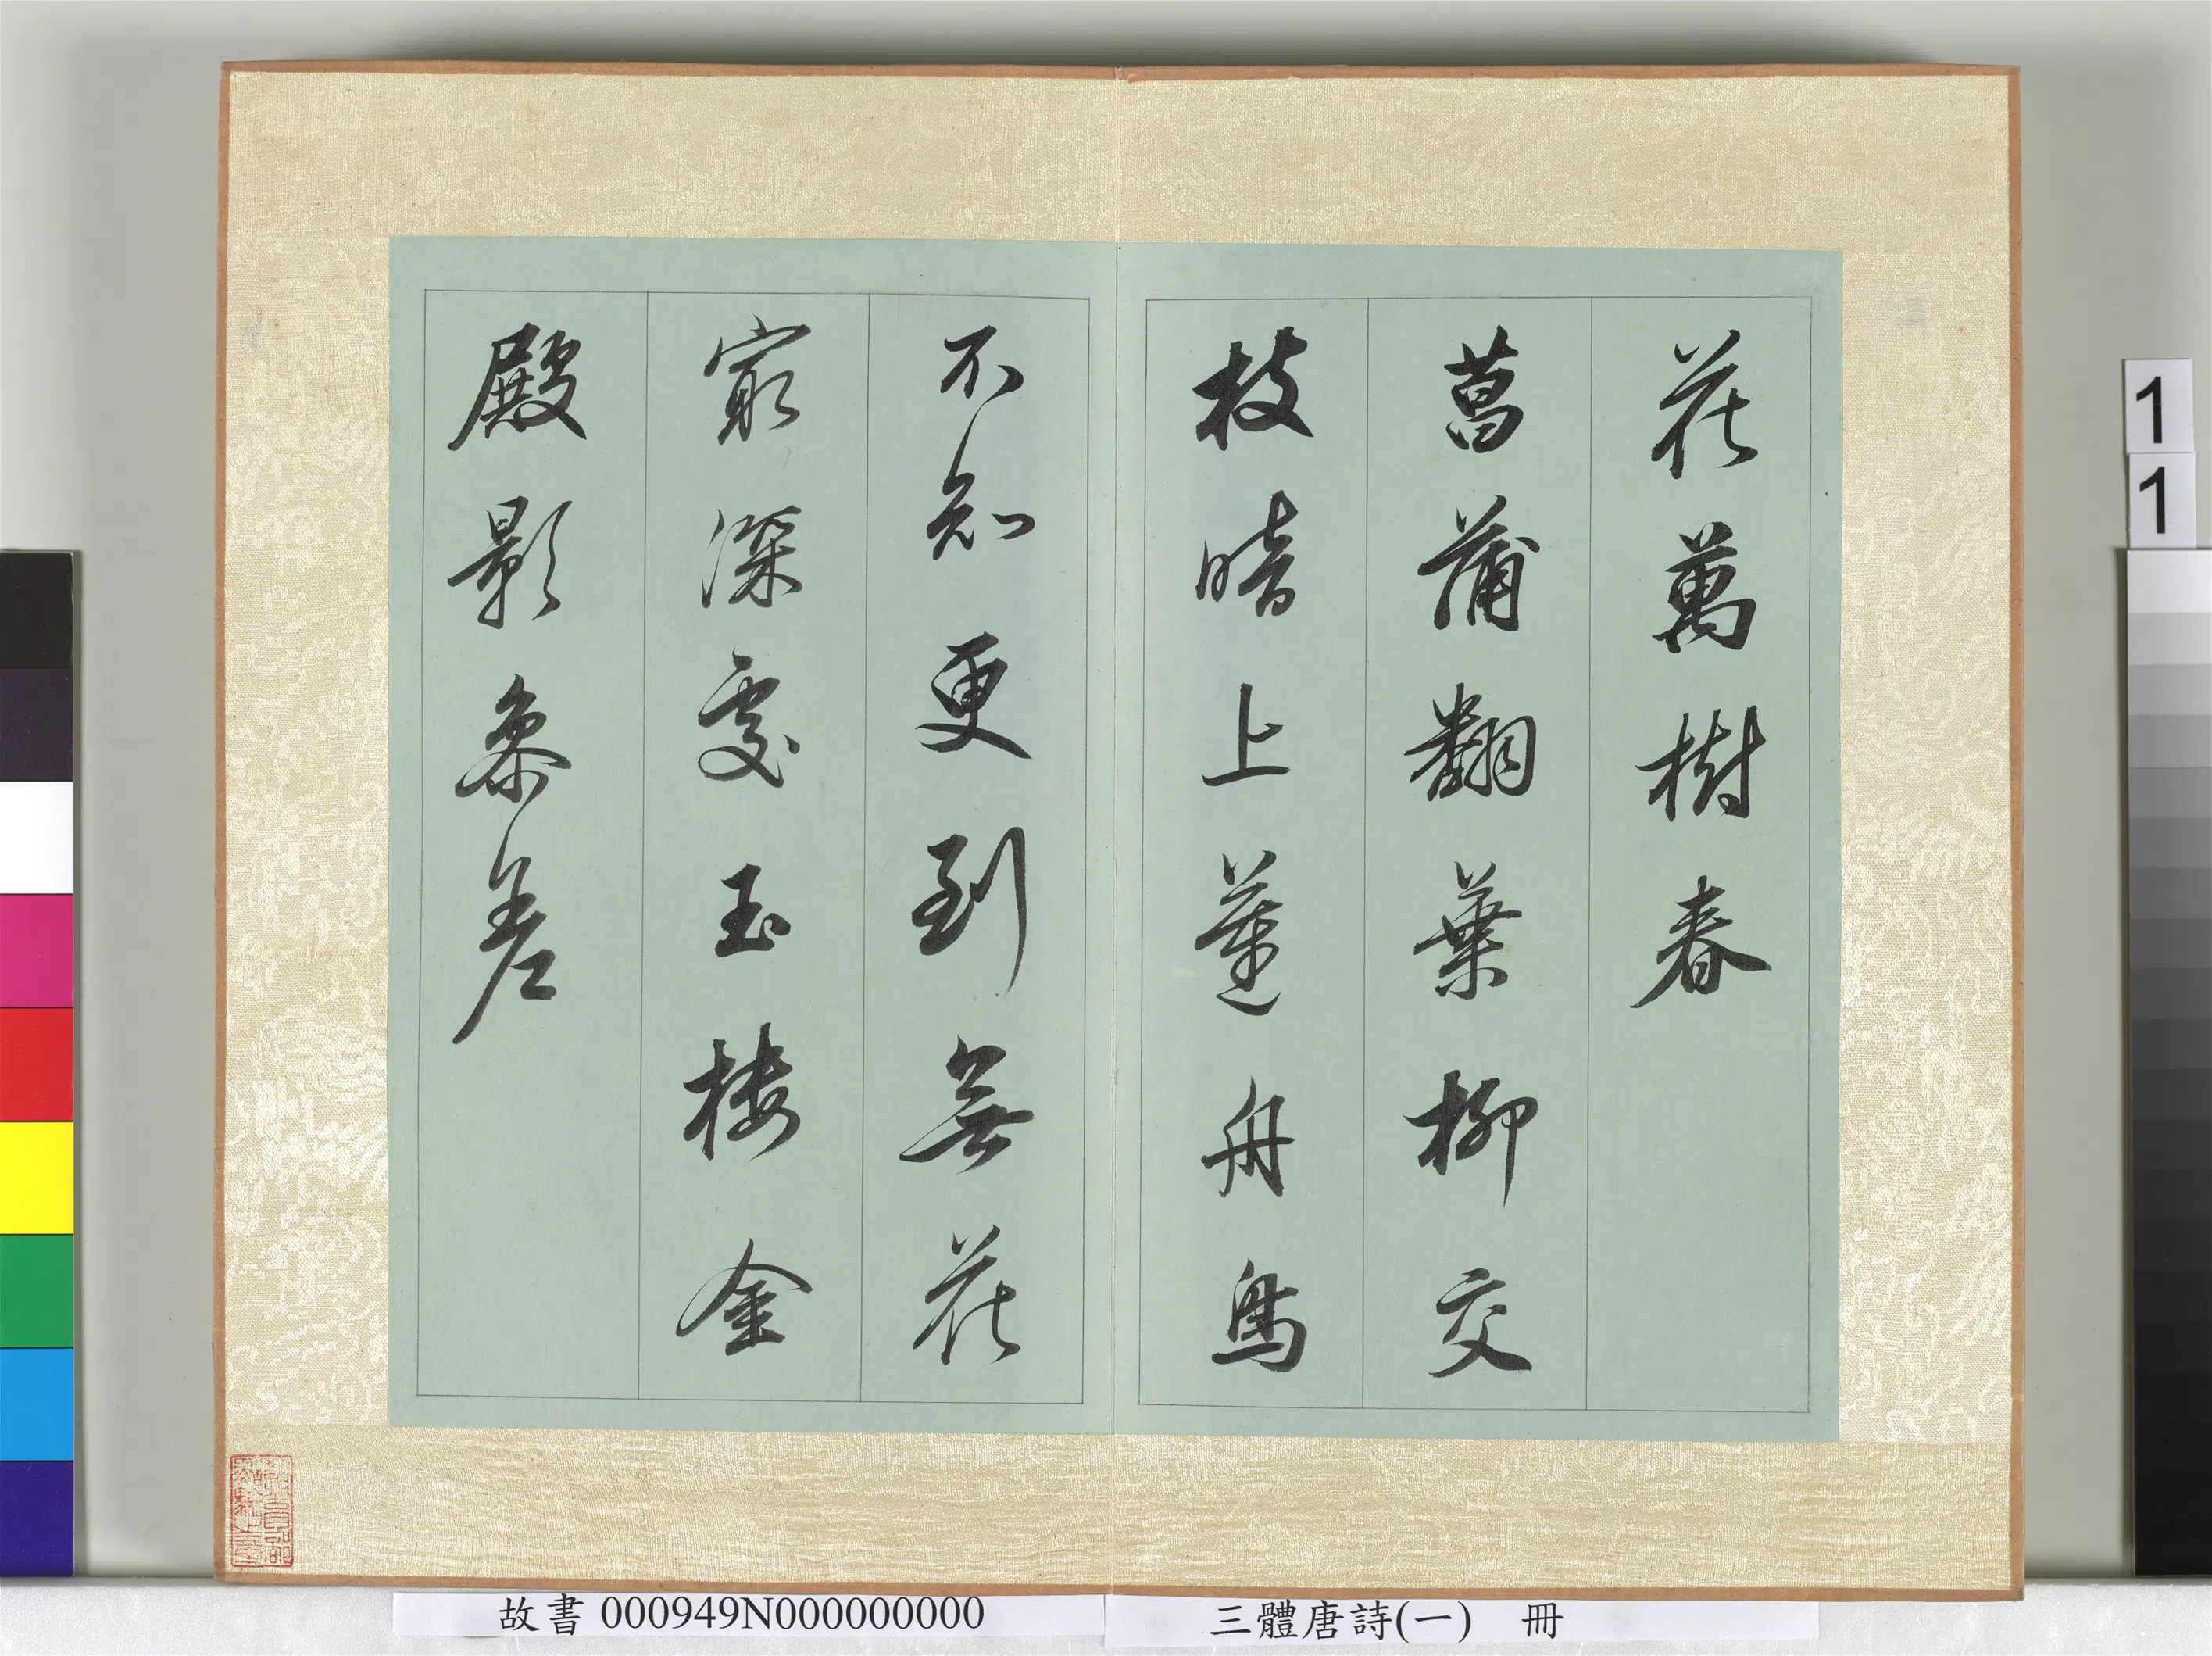 花萬樹春
菖蒲翻葉柳交
枝暗上蓮舟鳥
不知更到無花
窮深處玉樓金
殿影參差
故書 000949N000000000
三體唐詩(一) 冊
1
1